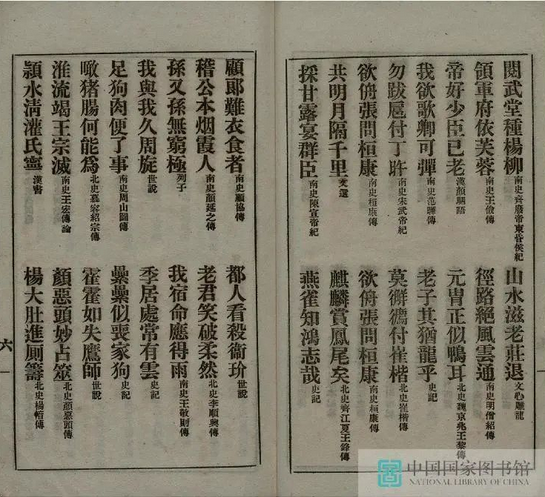 閱武堂種楊柳 南史齊廢帝東昏侯紀 山水滋老莊退 文心雕龍
領軍府依芙蓉 南史王儉傳 徑路絕風雲通 南史明僧紹傳
帝好少臣已老 漢顏駟語 元冑正似鴨耳 北史魏京兆王黎傳
我欲歌卿可彈 南史范曄傳 老子其猶龍乎 史記
勿跋扈付丁旿 南史宋武帝紀 莫付崔楷 北史崔楷傳
欲侜張問桓康 南史桓康傳 欲侜張問桓康 南史桓康傳
共明月隔千里 文選 麒麟賞鳳尾矣 北史齊江夏王鋒傳
採甘露宴群臣 南史陳宣帝紀 燕雀知鴻志哉 史記
顧郎難衣食者 南史顧協傳 都人看殺衞玠 世說
稽公本烟霞人 南史顏延之傳 老君笑破柔然 北史李順興傳
孫又孫無窮極 列子 我宿命應得雨 南史王敬則傳
我與我久周旋 世說 季居處常有雲 史記
足狗肉便了事 南史周山圖傳 纍纍似喪家狗 史記
噉猪腸何能為 北史慕容紹宗傳 霍霍如失鷹師 世說
淮流竭王宗滅 南史王宏傳論 顏惡頭妙占筮 北史顏惡頭傳
潁水清灌氏寧 漢書 楊大肚進廁籌 北史楊愔傳
六
中国国家图书馆
NATIONAL LIBRARY OF CHINA